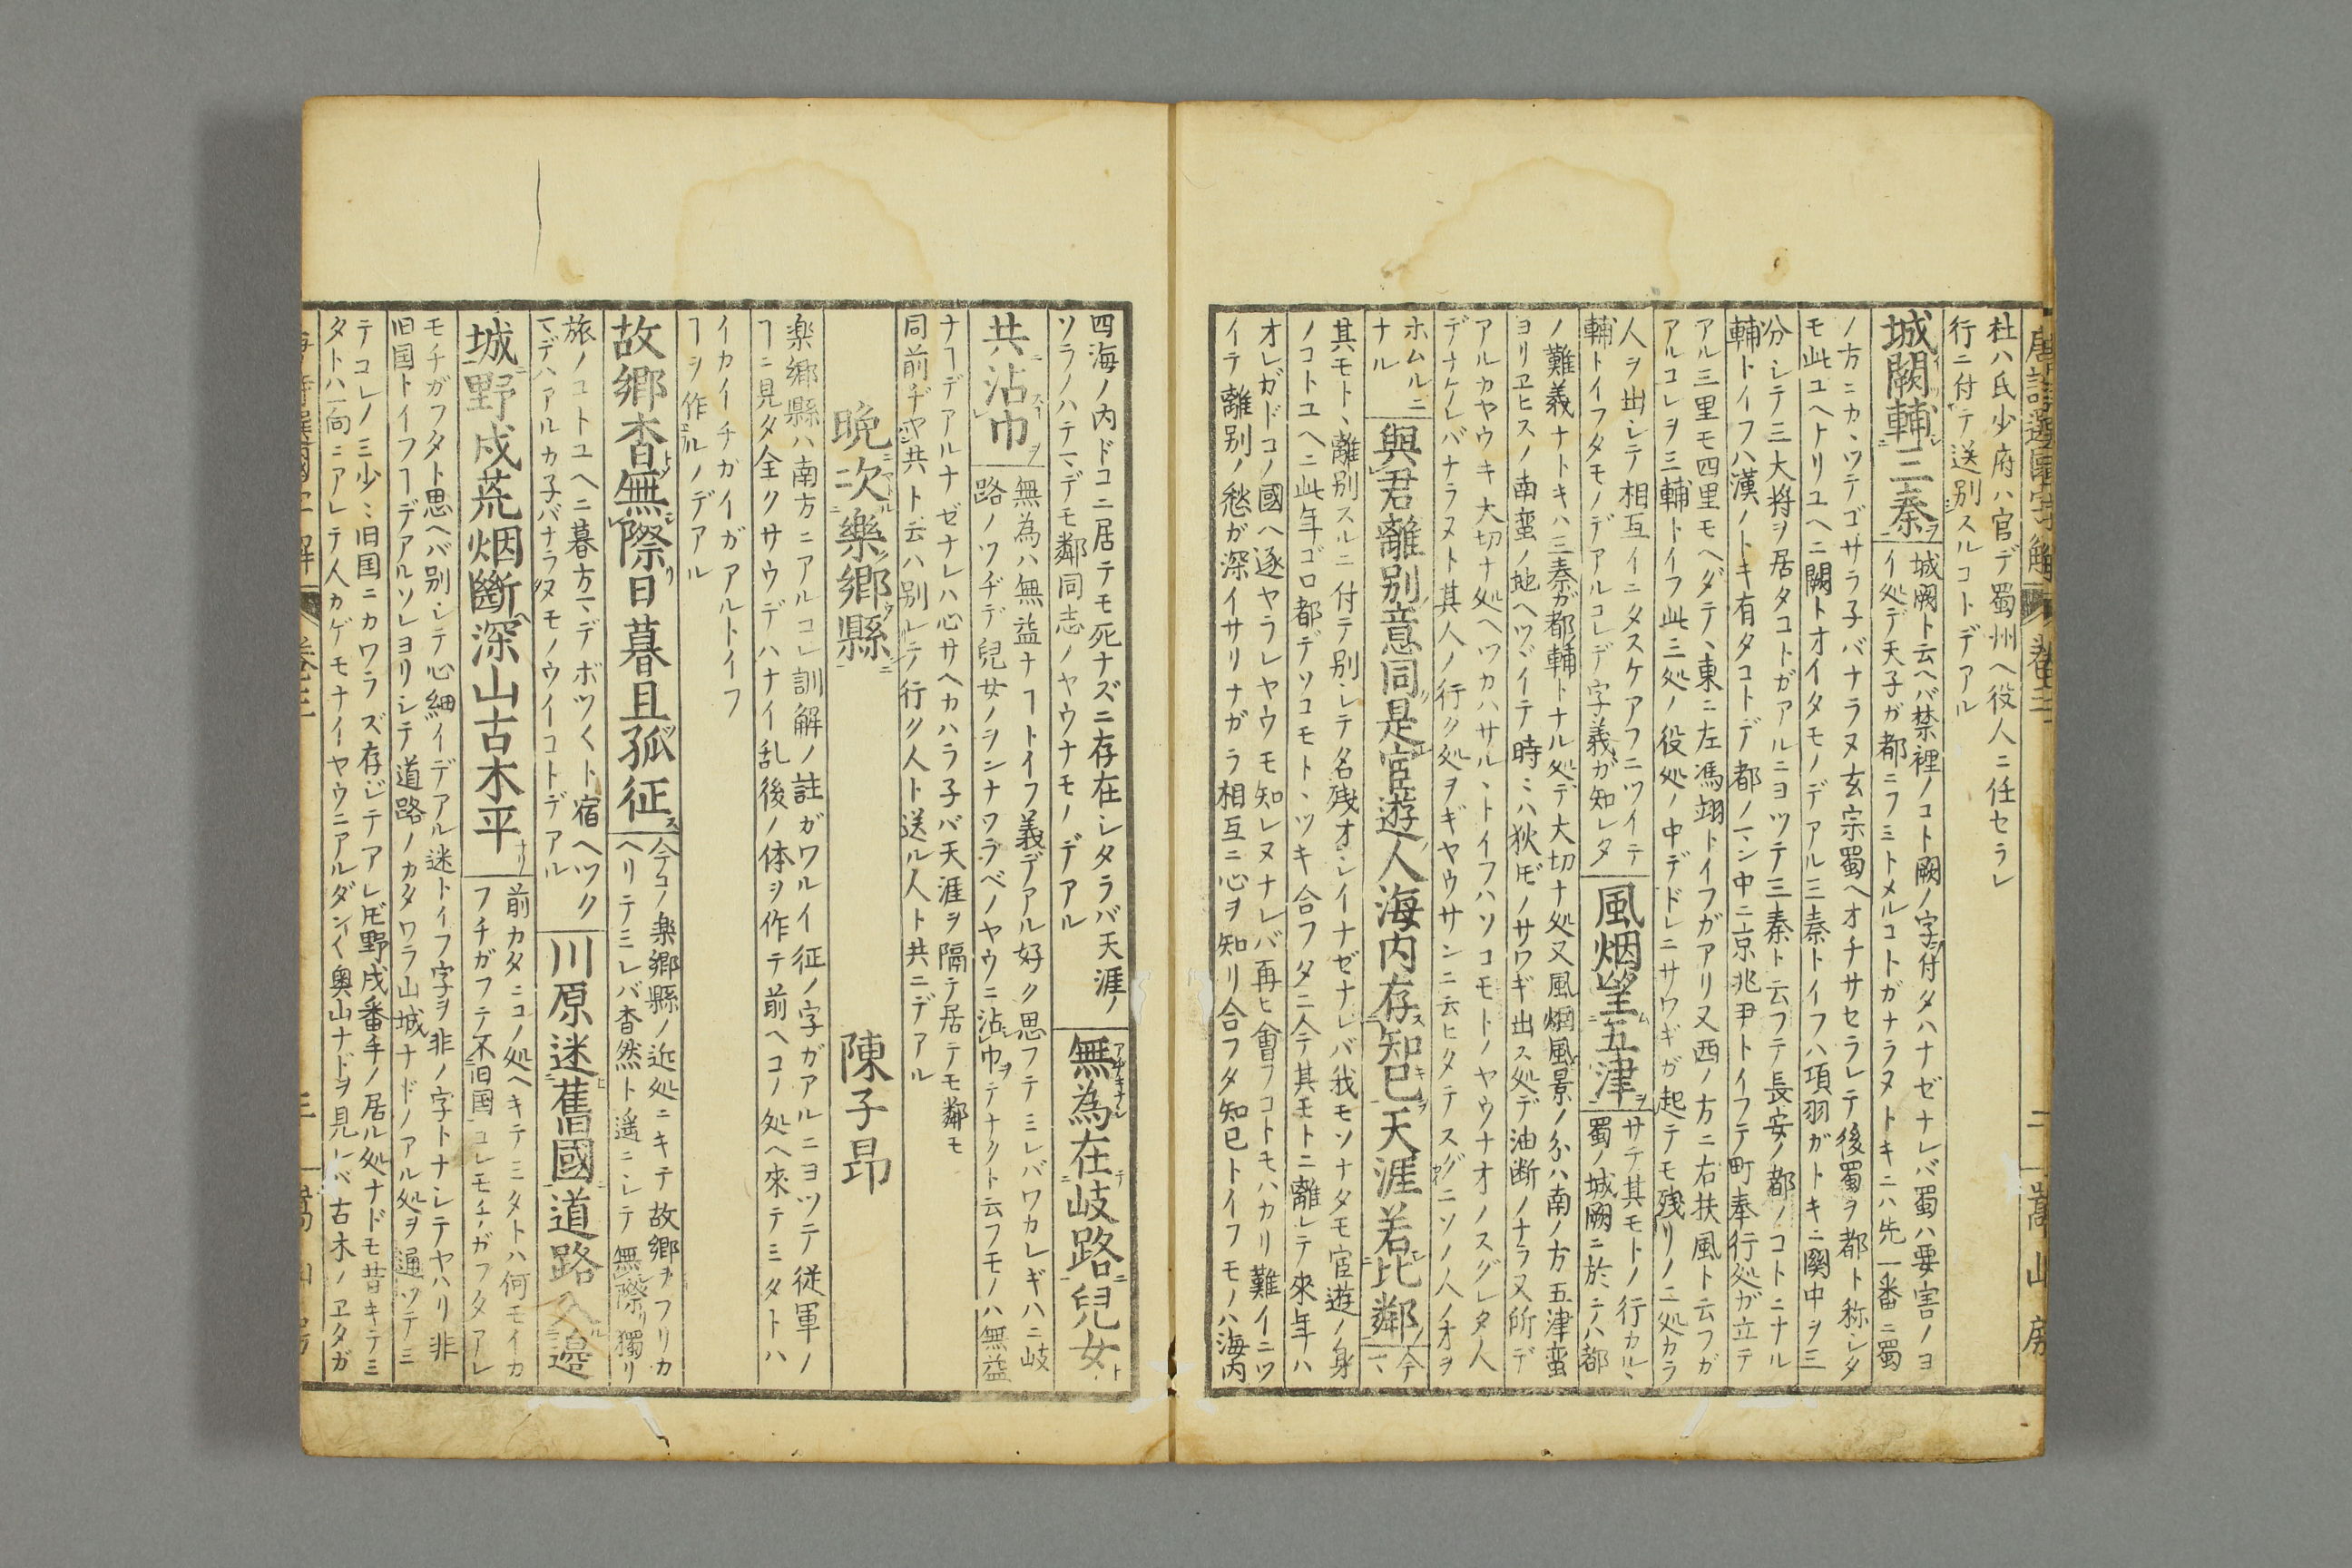 唐詩選國字解 巻三 二 嵩山房
杜ハ氏少府ハ官デ蜀州ヘ役人ニ任セラレ
行ニ付テ送別スルコトデアル
城闕輔三秦
城闕ト云ヘバ禁裡ノコト闕ノ字付タハナゼナレバ蜀ハ要害ノヨ
イ処デ天子ガ都ニフミトメルコトガナラヌトキニハ先一番ニ蜀
ノ方ニカヽツテゴサラ子バナラヌ玄宗蜀ヘオチサセラレテ後蜀ヲ都ト称シタ
モ此ユヘトリユヘニ闕トオイタモノデアル三秦トイフハ項羽ガトキニ関中ヲ三
分シテ三大将ヲ居タコトガアルニヨツテ三秦ト云フテ長安ノ都ノコトニナル
輔トイフハ漢ノトキ有タコトデ都ノマン中ニ京兆尹トイフテ町奉行処ガ立テ
アル三里モ四里モヘダテヽ東ニ左馮翊トイフガアリ又西ノ方ニ右扶風ト云フガ
アルコレヲ三輔トイフ此三処ノ役処ノ中デドレニサワギガ起テモ残リノ二処カラ
人ヲ出シテ相互イニタスケアフニツイテ
輔トイフタモノデアルコレデ字義ガ知レタ
風烟望五津
サテ其モトノ行カルヽ
蜀ノ城闕ニ於テハ都
ノ難義ナトキハ三秦ガ都輔トナル処デ大切ナ処又風烟風景ノ分ハ南ノ方五津蛮
ヨリヱヒスノ南蛮ノ地ヘツヾイテ時ミハ狄ドモノサワギ出ス処デ油断ノナラヌ所デ
アルカヤウキ大切ナ処ヘツカハサルヽトイフハソコモトノヤウナオノスグレタ人
デナケレバナラヌト其人ノ行ク処ヲギヤウサンニ云ヒタテスグニソノ人ノオヲ
ホムルニ
ナル
與君離別意同是宦遊人海内存知己天涯若比鄰
今
マヽ
其モトヽ離別スルニ付テ別シテ名残オシイナゼナレバ我モソナタモ宦遊ノ身
ノコトユヘニ此年ゴロ都デソコモトヽツキ合フタニ今其モトニ離レテ來年ハ
オレガドコノ國ヘ逐ヤラレヤウモ知レヌナレバ再ヒ會フコトモハカリ難イニツ
イテ離別ノ愁ガ深イサリナガラ相互ニ心ヲ知リ合フタ知已トイフモノハ海内
四海ノ内ドコニ居テモ死ナズニ存在シタラバ天涯ノ
ソラノハテマデモ鄰同志ノヤウナモノデアル
無為在岐路兒女
共沾巾
無為ハ無益ナヿトイフ義デアル好ク思フテミレバワカレギハニ岐
路ノツヂデ兒女ノヲンナワラベノヤウニ沾巾テナクト云フモノハ無益
ナヿデアルナゼナレハ心サヘカハラ子バ天涯ヲ隔テ居テモ鄰モ
同前ヂヤ共ト云ハ別レテ行ク人ト送ル人ト共ニデアル
晩次樂鄉縣 陳子昂
楽郷縣ハ南方ニアルコレ訓解ノ註ガワルイ征ノ字ガアルニヨツテ従軍ノ
ヿニ見タ全クサウデハナイ乱後ノ体ヲ作テ前ヘコノ処ヘ來テミタトハ
イカイチガイガアルトイフ
ヿヲ作ルノデアル
故鄉杳無際日暮且孤征
今コノ楽郷縣ノ近処ニキテ故郷ヲフリカ
ヘリテミレバ杳然ト遥ニシテ無際リ獨リ
旅ノコトユヘニ暮方マデボツ〱ト宿ヘツク
マデハアルカ子バナラヌモノウイコトデアル
川原迷舊國道路入邊
城野戍荒烟斷深山古木平
前カタニコノ処ヘキテミタトハ何モイカ
フチガフテ不旧國コレモチガフタアレ
モチガフタト思ヘバ別シテ心細イデアル迷トイフ字ヲ非ノ字トナシテヤハリ非
旧国トイフヿデアルソレヨリシテ道路ノカタワラ山城ナドノアル処ヲ通ツテミ
テコレノミ少ミ旧国ニカワラズ存ジテアレドモ野戍番手ノ居ル処ナドモ昔キテミ
タトハ一向ニアレテ人カゲモナイヤウニアルダン〱奥山ナドヲ見レバ古木ノヱダガ